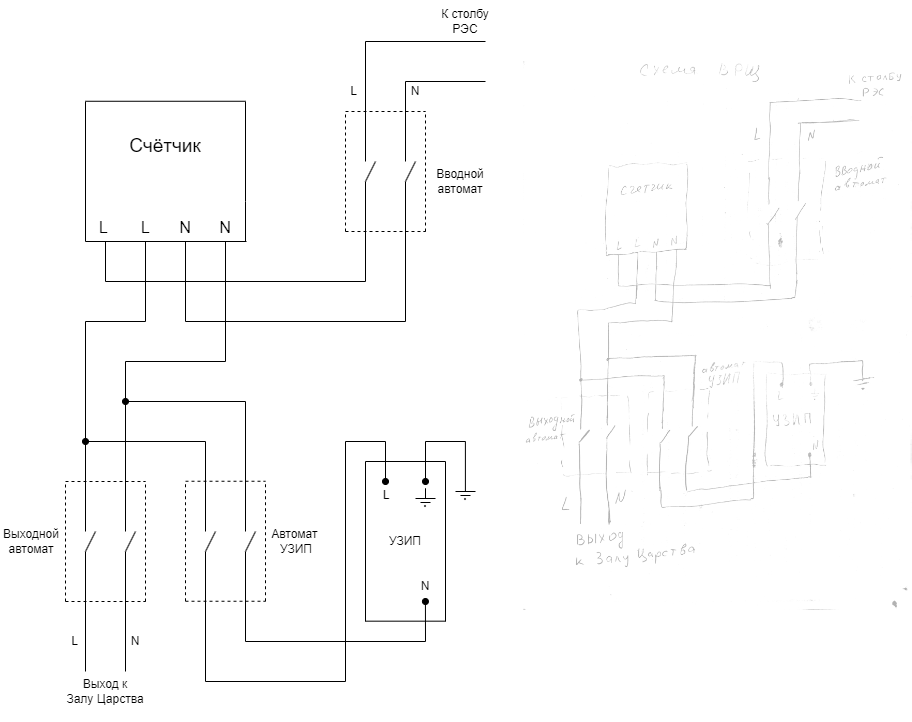 К столбу
РЭС
L
N
Счётчик
L L N N
Вводной
автомат
Выходной
автомат
Автомат
УЗИП
L
УЗИП
N
L
N
Выход к
Залу Царства
Схема ВРЩ
К столбу
РЭС
L
N
Вводной
автомат
Счетчик
L L N N
автомат
УЗИП
Выходной
автомат
L
УЗИП
N
L
N
Выход
к Залу Царства